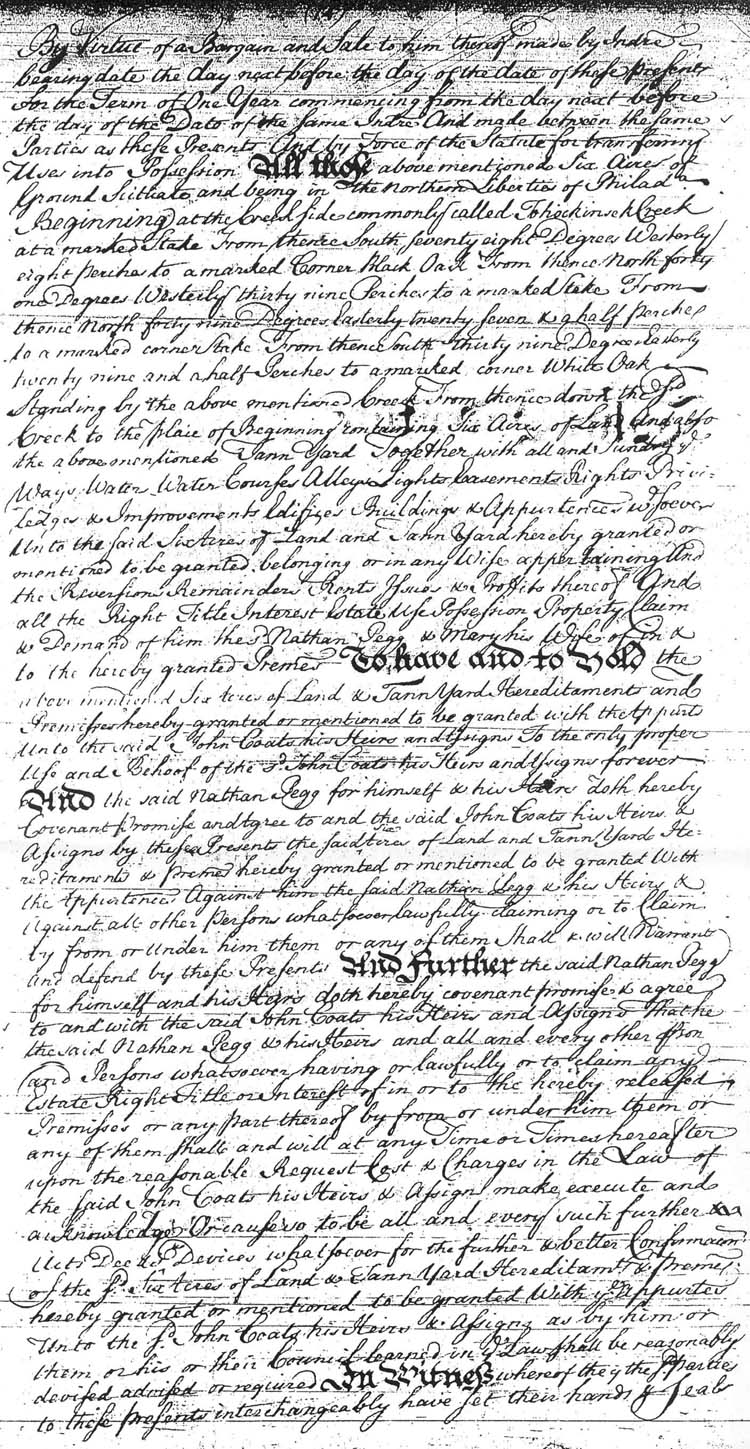 By Virtue of a Bargain and Sale to him thereof made by Indre
bearing date the day next before the day of the date of these Presents
for the Term of One Year commencing from the day next before
the day of the Date of the same Indre And made between the same
Parties as these Presents And by Force of the Statute for transferring
Uses into Possession All those above mentioned Six Acres of
Ground Scittuate and being in the Northern Liberties of Philada
Beginning at the Creek side commonly called Tohockinsck Creek
at a marked Stake From thence South seventy eight Degrees Westerly
eight Perches to a marked Corner Black Oak From thence North forty
one Degrees Westerly thirty nine Perches to a marked Stake From
thence North forty nine Degrees Easterly twenty seven & a half Perches
to a marked corner Stake From thence South thirty nine Degrees Easterly
twenty nine and a half Perches to a marked corner White Oak
Standing by the above mentioned Creek From thence down the sd
Creek to the Place of Beginning containing Six Acres of Land And also
the above mentioned Tann Yard Together with all and Sundry ye
Ways Water Water Courses Alleys Lights Easements Rights Privi-
ledges & Improvements Edifices Buildings & Appurtences wtsoever
Unto the said Six Acres of Land and Tann Yard hereby granted or
mentioned to be granted belonging or in any Wise appertaining And
the Reversions Remainders Rents Issues & Proffits thereof And
all the Right Title Interest Estate Use Possession Property Claim
& Demand of him the sd Nathan Pegg & Mary his Wife of in &
to the hereby granted Premes To have and to Hold the
above mentioned Six Acres of Land & Tann Yard Hereditaments and
Premisses hereby granted or mentioned to be granted with the Appurts
Unto the said John Coats his Heirs and Assigns To the only proper
Use and Behoof of the sd John Coats his Heirs and Assigns forever
And the said Nathan Pegg for himself & his Heirs doth hereby
Covenant Promise and Agree to and the said John Coats his Heirs &
Assigns by these Presents the said Six Acres of Land and Tann Yard He-
reditaments & Premes hereby granted or mentioned to be granted With
the Appurtences Against him the said Nathan Pegg & his Heirs &
Against all other Persons whatsoever lawfully claiming or to Claim
by from or Under him them or any of them Shall & will Warrant
and defend by these Presents And Further the said Nathan Pegg
for himself and his Heirs doth hereby covenant promise & agree
to and with the said John Coats his Heirs and Assigns That he
the said Nathan Pegg & his Heirs and all and every other Pson
and Persons whatsoever having or lawfully or to claim any
Estate Right Title or Interest of in or to the hereby released
Premisses or any Part thereof by from or under him them or
any of them shall and will at any Time or Times hereafter
upon the reasonable Request Cost & Charges in the Law of
the said John Coats his Heirs & Assigns make execute and
acknowledge Or cause so to be all and every such further &
Acts Deeds Devices whatsoever for the further & better Confirmacon
of the sd Six Acres of Land & Tann Yard Hereditamts & Premes
hereby granted or mentioned to be granted With ye Appurtes
Unto the sd John Coats his Heirs & Assigns as by him or
them or his or their Council learned in ye Law shall be reasonably
devised advised or required In Witness whereof the sd Parties
to these presents interchangeably have set their hands & Seals